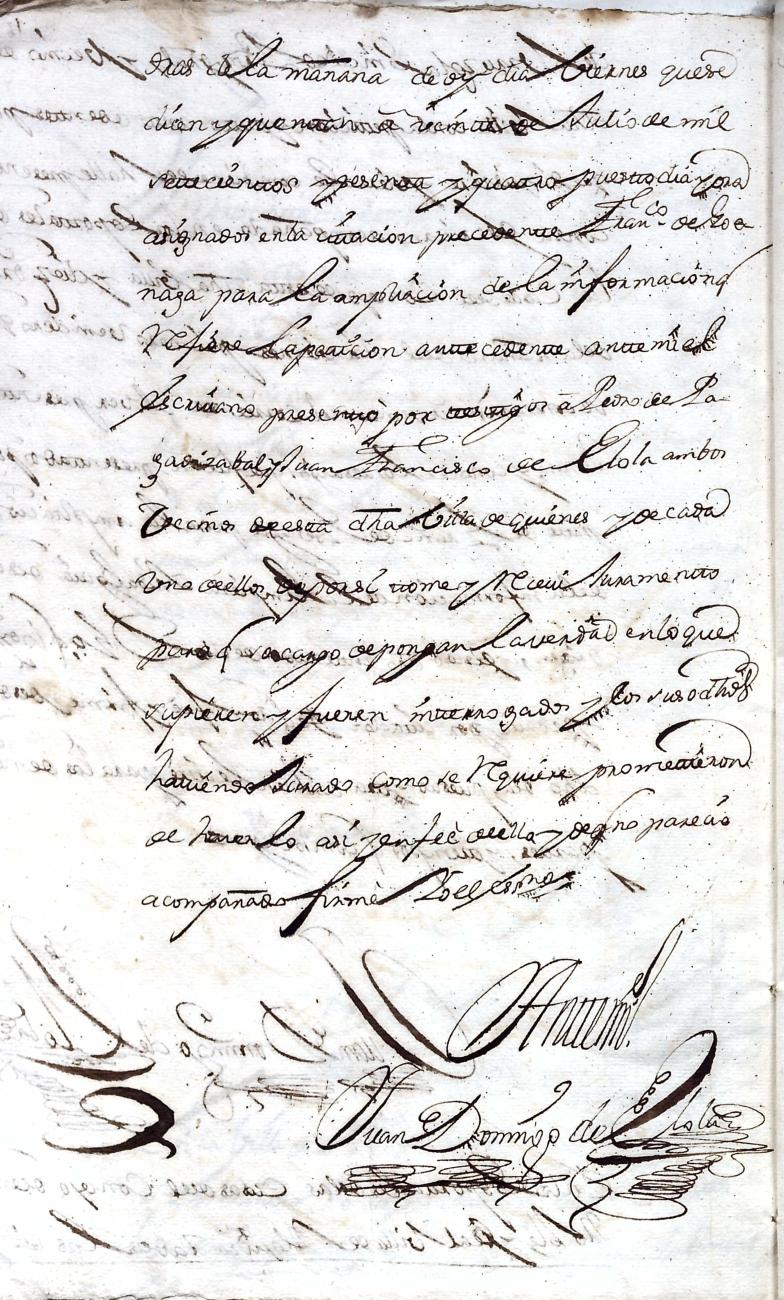 oras de la mañana de oy dia Viernes que se
dicen y quentan veinte de Julio de mil
settecienttos y sesenta y quatro puesto dia y ora
asignados en la cittacion precedente Franco. de Loa
naga para la ampliacion de la informacion q
refiere la peticion anttecedente antte mi el
Escrivano presentó por testigos a Pedro de La
zarizabal y Juan Francisco de Elola ambos
Vecinos de esta dha Villa de quienes y de cada
uno de ellos de por si tome y recevi Juramentto
para q so cargo depongan la verdad en lo que
supieren y fueren interrogados y los suso dhos
haviendo Jurado como se requiere prometieron
de hacerlo asi y en fee de ello y de q no parecio
acompañado firmé Yo el Essno
Antte mi
Juan Domingo de Elola